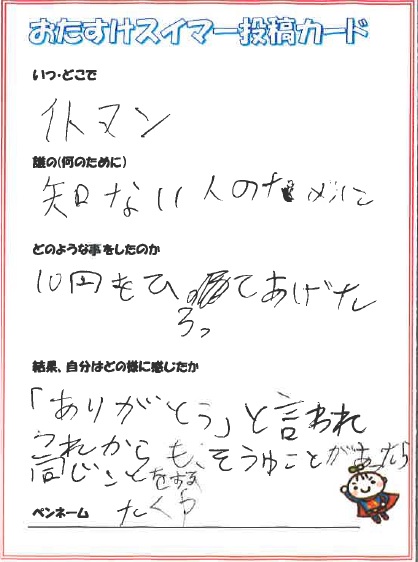 おたすけスイマー投稿カード
いつ・どこで
イトマン
誰の(何のために)
知らない人のために
どのような事をしたのか
10円をひろってあげた
結果、自分はどの様に感じたか
「ありがとう」と言われ
これからも、そうゆことがあったら
同じことをする
ペンネーム たくや